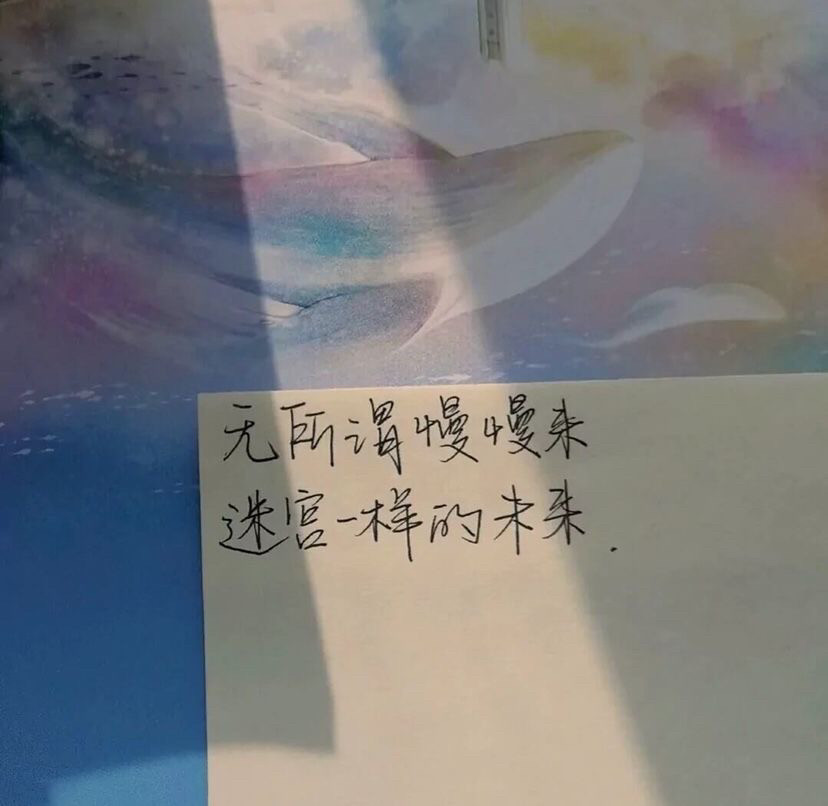 无所谓慢慢来
迷宫一样的未来.